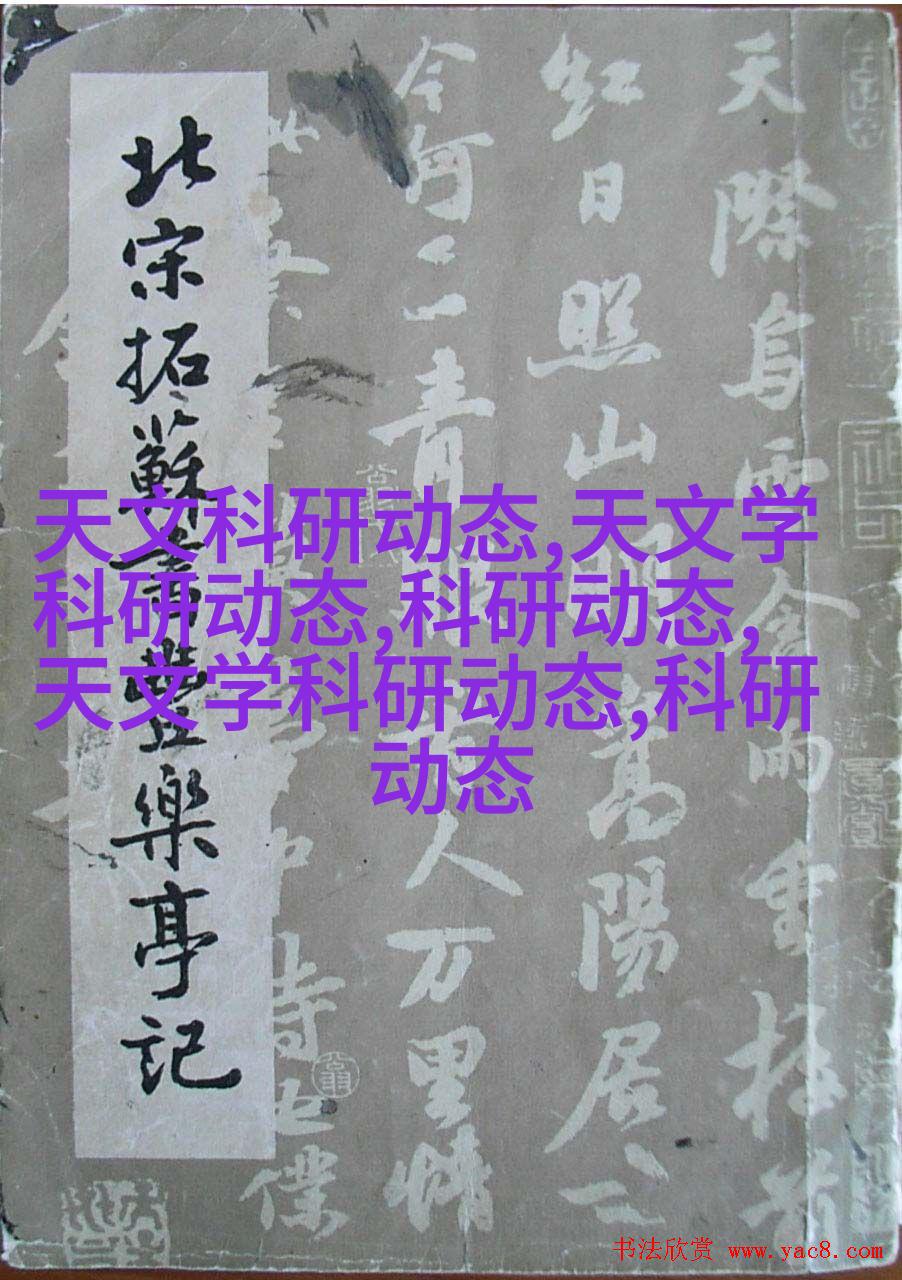 天際烏雲含雨重樓前
紅日照山明嵩陽居士
今何在青眼看人万里情
詩也僕
北宋拓蘇書豐樂亭記
天文科研动态,天文学
科研动态,科研动态,
天文学科研动态,科研
动态
书法欣赏 www.yac8.com